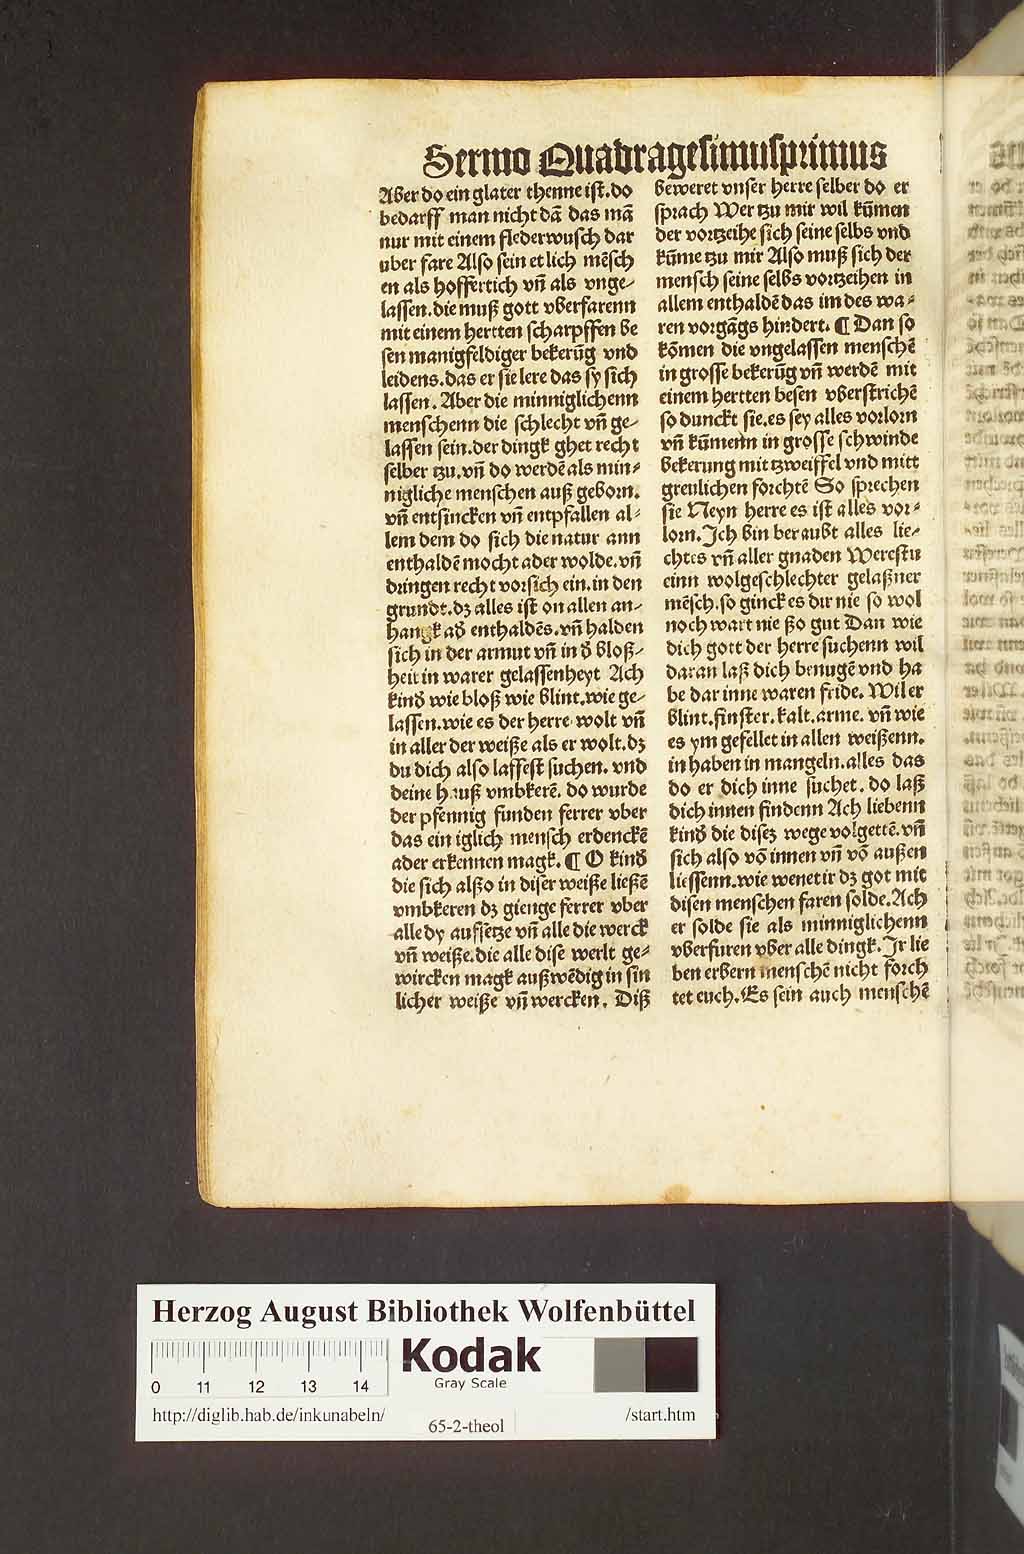 Sermo Quadragesimusprimus
Aber do ein glater thenne ist. do
bedarff man nicht dā das mā
nur mit einem flederwusch dar
uber fare Also sein etlich mēsch
en als hoffertich vn̄ als vnge-
lassen. die muß gott vberfarenn
mit einem hertten scharpffen be
sen manigfeldiger bekerūg vnd
leidens. das er sie lere das sy sich
lassen. Aber die minniglichenn
menschenn die schlecht vn̄ ge-
lassen sein. der dingk ghet recht
selber tzu. vn̄ do werdē als min-
nigliche menschen auß geborn.
vn̄ entsincken vn̄ entpfallen al-
lem dem do sich die natur ann
enthaldē mocht ader wolde. vn̄
dringen recht vorsich ein. in den
grundt. dz alles ist on allen an-
hangk ad̄ enthaldēs. vn̄ halden
sich in der armut vn̄ in d̄ bloß-
heit in warer gelassenheyt Ach
kind̄ wie bloß wie blint. wie ge-
lassen. wie es der herre wolt vn̄
in aller der weiße als er wolt. dz
du dich also lassest suchen. vnd
deine hauß vmbkerē. do wurde
der pfennig funden ferrer vber
das ein iglich mensch erdenckē
ader erkennen magk. ¶ O kind̄
die sich alßo in diser weiße ließē
vmbkeren dz gienge ferrer vber
alle dy aufsetze vn̄ alle die werck
vn̄ weiße. die alle dise werlt ge-
wircken magk außwēdig in sin
licher weiße vn̄ wercken. Diß
beweret vnser herre selber do er
sprach Wer tzu mir wil kūmen
der vortzeihe sich seine selbs vnd
kūme tzu mir Also muß sich der
mensch seine selbs vortzeihen in
allem enthaldē das im des wa-
ren vorgāgs hindert. ¶ Dan so
kōmen die vngelassen menschē
in grosse bekerūg vn̄ werdē mit
einem hertten besen vberstrichē
so dunckt sie. es sey alles vorlorn
vn̄ kūmenn in grosse schwinde
bekerung mit tzweiffel vnd mitt
greulichen forchtē So sprechen
sie Neyn herre es ist alles vor-
lorn. Ich bin beraubt alles lie-
chtes vn̄ aller gnaden Werestu
einn wolgeschlechter gelaßner
mēsch. so ginck es dir nie so wol
noch wart nie ßo gut Dan wie
dich gott der herre suchenn wil
daran laß dich benugē vnd ha
be dar inne waren fride. Wil er
blint. finster. kalt. arme. vn̄ wie
es ym gefellet in allen weißenn.
in haben in mangeln. alles das
do er dich inne suchet. do laß
dich innen findenn Ach liebenn
kind̄ die disez wege volgettē. vn̄
sich also vō innen vn̄ vō außen
liessenn. wie wenet ir dz got mit
disen menschen faren solde. Ach
er solde sie als minniglichenn
vberfuren vber alle dingk. Ir lie
ben erbern menschē nicht forch
tet euch. Es sein auch menschē
Herzog August Bibliothek Wolfenbüttel
Kodak
Gray Scale
0 11 12 13 14
http://diglib.hab.de/inkunabeln/
65-2-theol
/start.htm